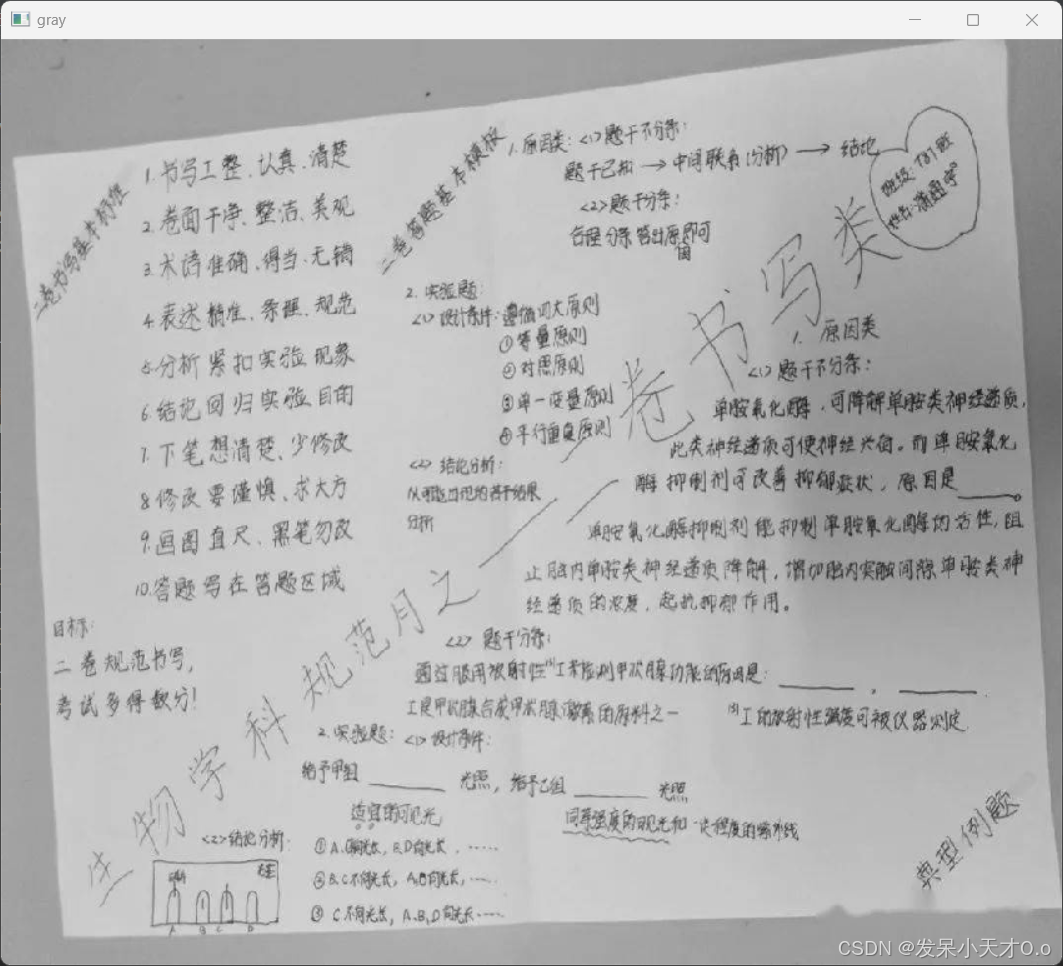 gray
二卷书写基本标准
1. 书写工整、认真、清楚
2. 卷面干净、整洁、美观
3. 术语准确、得当、无错
4. 表述精准、条理、规范
5. 分析紧扣实验现象
6. 结论回归实验目的
7. 下笔想清楚、少修改
8. 修改要谨慎、求大方
9. 画图直尺、黑笔勿改
10. 答题写在答题区域
目标:
二卷规范书写,
考试多得数分!
二卷答题基本模板
1. 原因类: <1> 题干不分条:
题干已知 → 中间联系(分析) → 结论
<2> 题干分条:
合理分条答出原因即可
2. 实验题:
<1> 设计条件: 遵循四大原则
① 等量原则
② 对照原则
③ 单一变量原则
④ 平行重复原则
<2> 结论分析:
分析
班级:
姓名:
生物学科规范月之——二卷书写类
1. 原因类
<1> 题干不分条:
单胺氧化酶,可降解单胺类神经递质,
此类神经递质可使神经兴奋。而单胺氧化
酶抑制剂可改善抑郁症状,原因是______。
单胺氧化酶抑制剂能抑制单胺氧化酶的活性,阻
止脑内单胺类神经递质降解,增加脑内突触间隙单胺类神
经递质的浓度,起抗抑郁作用。
<2> 题干分条:
通过服用放射性¹³¹I来检测甲状腺功能的原因是: ______,______.
I是甲状腺合成甲状腺激素的原料之一 ¹³¹I的放射性强度可被仪器测定
2. 实验题: <1> 设计条件:
给予甲组 ______ 光照,给予乙组 ______ 光照
适宜的可见光 同等强度的可见光和一定程度的紫外线
<2> 结论分析:
A B C D
典型例题
CSDN @发呆小天才O.o